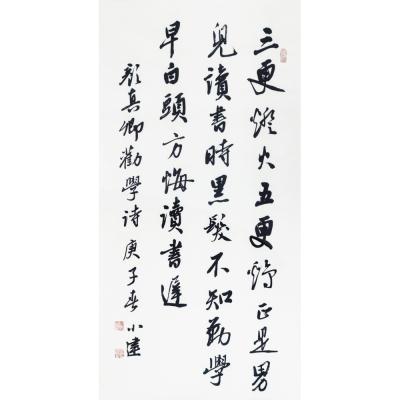 三更燈火五更鷄正是男
兒讀書時黑髮不知勤學
早白頭方悔讀書遲
顏真卿勸學詩庚子春小運